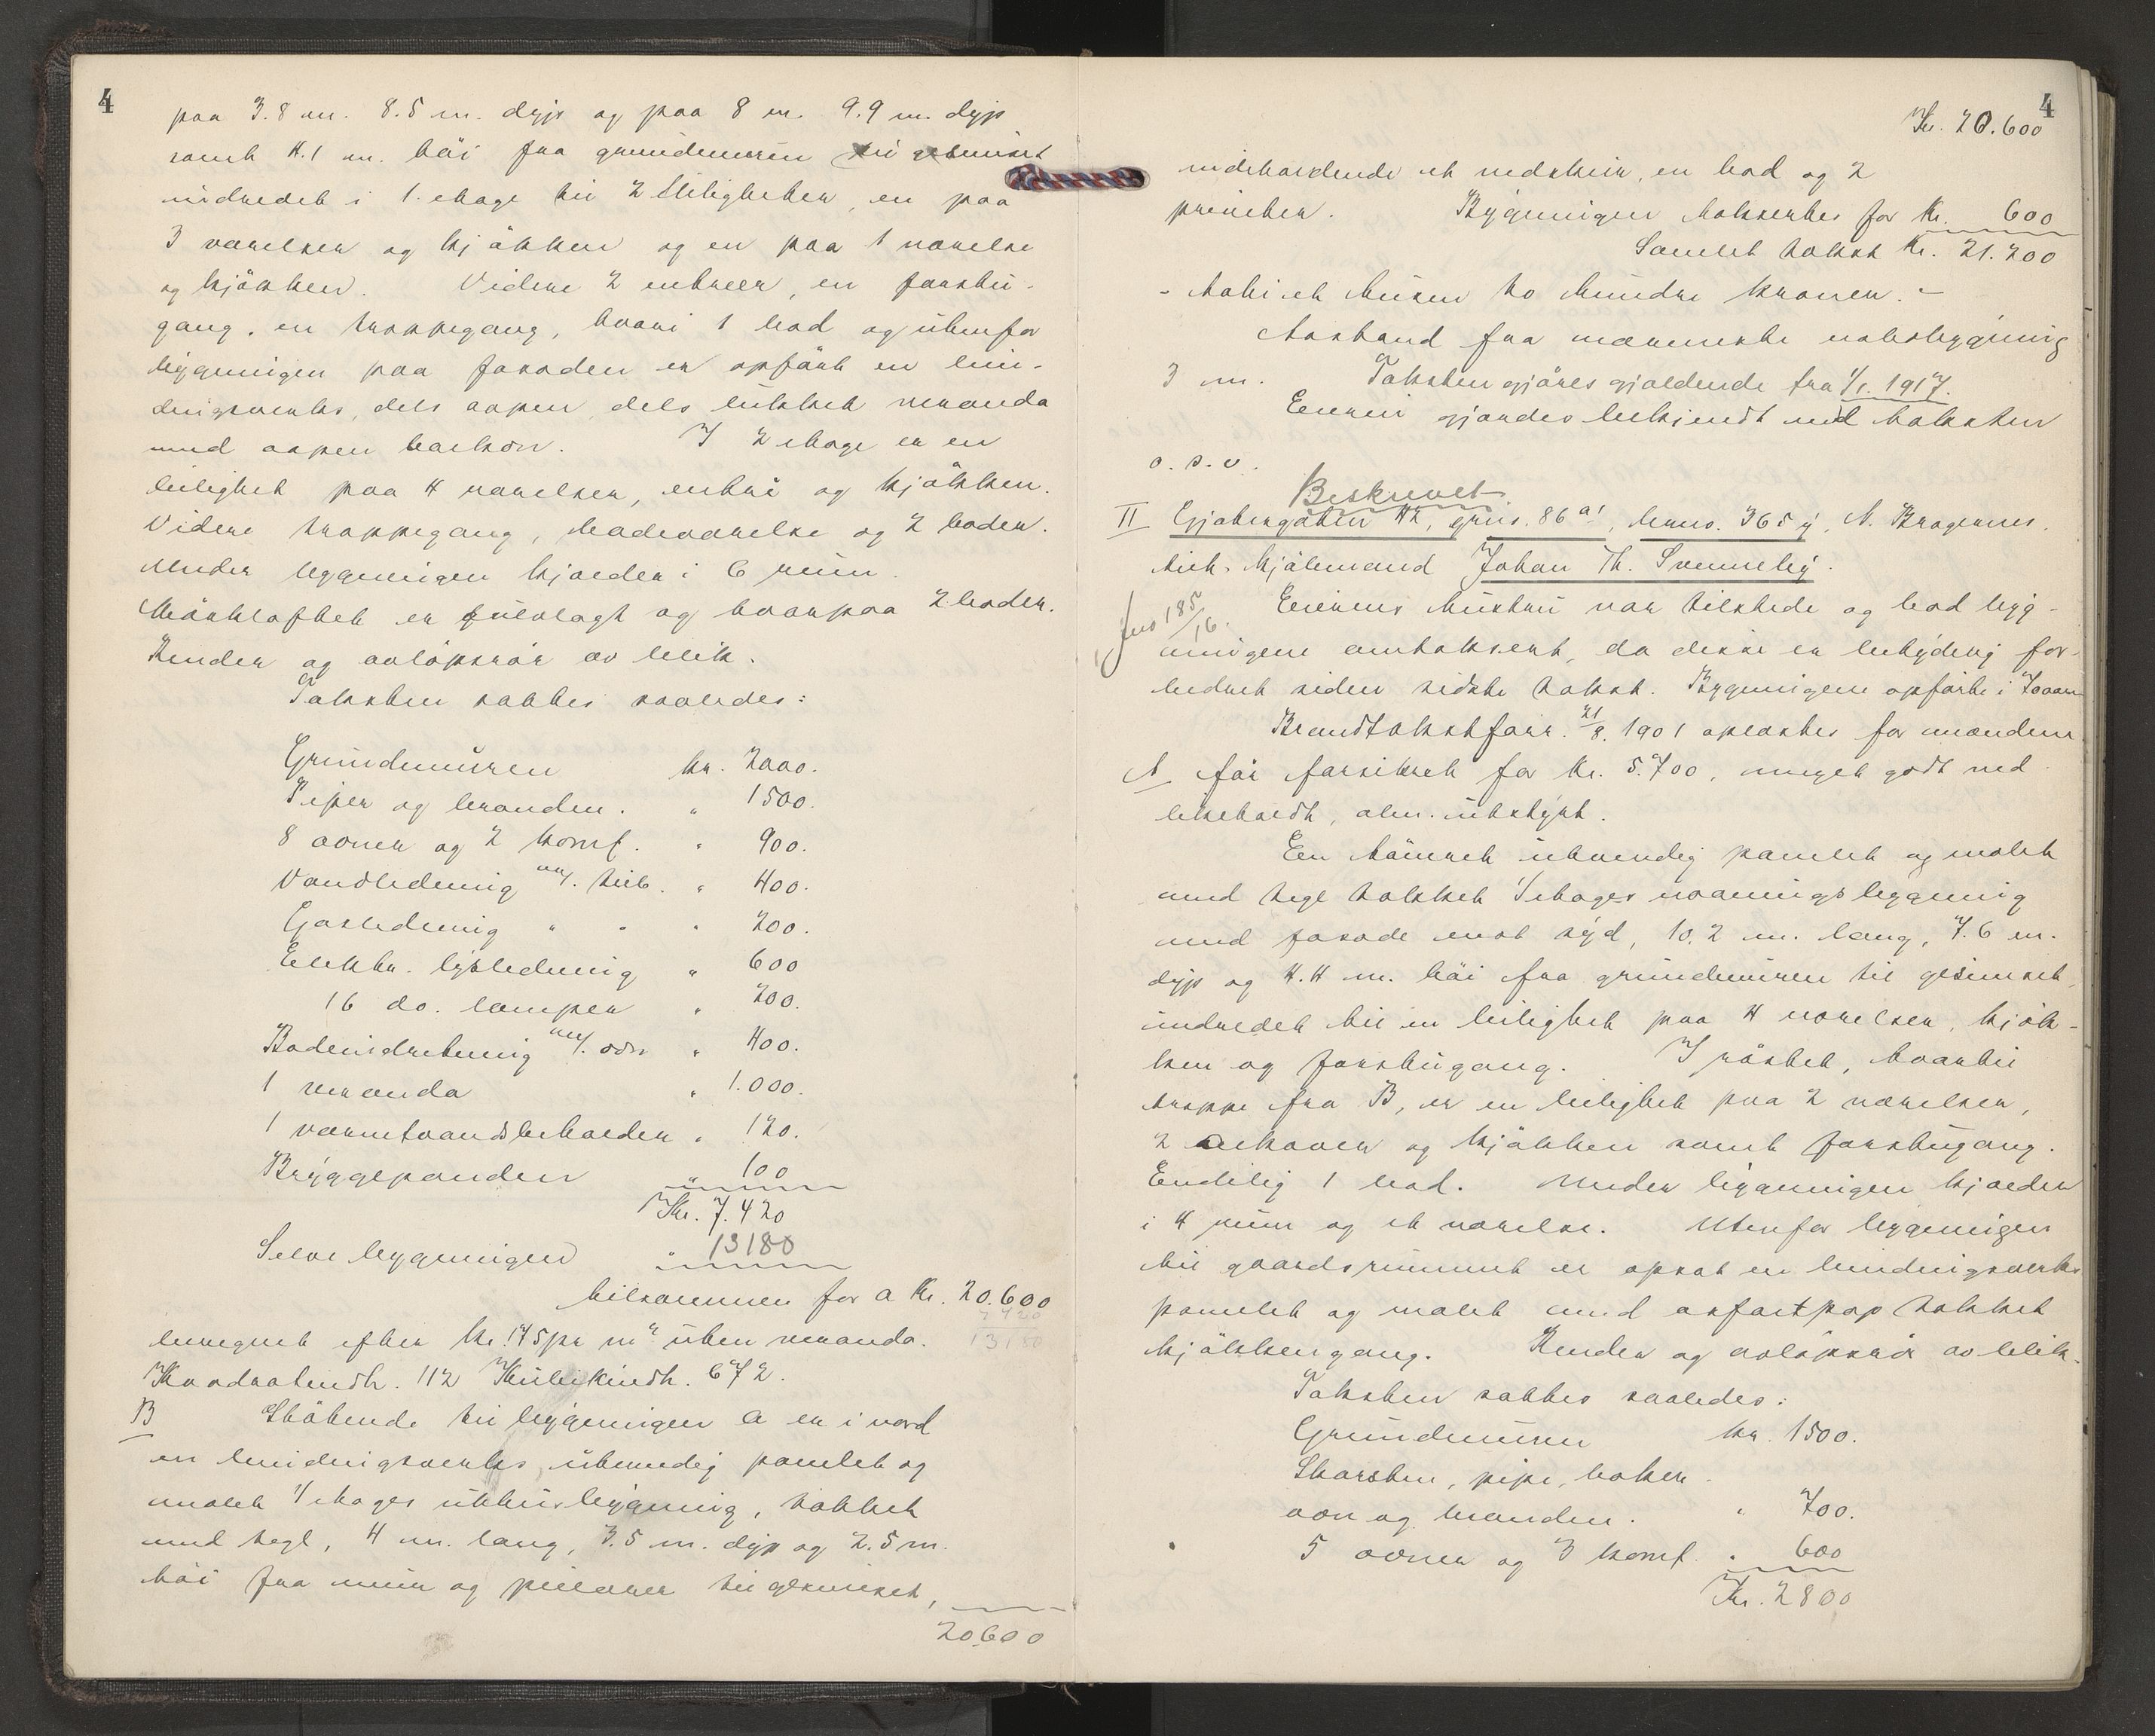 4
paa 3.8 m. 8.5 m. dyp og paa 8 m. 9.9 m. dyp
samt 4.1 m. høi fra grundmuren til gesimset
indredet i 1. etage til 2 leiligheter, en paa
3 værelser og kjøkken og en paa 1 værelse
og kjøkken. Videre 2 entreer, en forstu-
gang, en trappegang, hvori 1 bod og utenfor
bygningen paa fasaden er opført en bin-
dingsverks, dels aapen dels lukket veranda
med aapen balkon. I 2 etage er en
leilighet paa 4 værelser, entré og kjøkken.
Videre trappegang, badeværelse og 2 boder.
Under bygningen kjælder i 6 rum.
Mørkloftet er gulvlagt og hvorpaa 2 boder.
Render og avløpsrør av blik.
Taksten sattes saaledes:
Grundmuren kr. 2000.
Piper og branden. " 1500.
8 ovner og 2 komf. " 900.
Vandledning m/. tilb. " 400.
Gasledning " " " 200.
Elektr. lysledning " 600
16 do. lamper " 200.
Badeindretning m/. ovn " 400.
1 veranda " 1.000.
1 varmtvandsbeholder " 120.
Bryggepanden " 100
Kr. 7.420
Selve bygningen " 13180
tilsammen for a Kr. 20.600
7420
beregnet efter kr. 175 pr m² uten veranda. 13180
Kvadratindh. 112 Kubikindh. 672.
B Støtende til bygningen a er i nord
en bindingsverks, utvendig panelet og
malet 1/etages uthusbygning, tækket
med tegl, 4 m. lang, 3.5 m. dyp og 2.5 m.
høi fra mur og pillarer til gesimset,
20600
4
Kr. 20.600
indeholdende et nedskur, en bod og 2
priveter. Bygningen taksertes for Kr. 600
Samlet takst Kr. 21.200
- Toti et tusen to hundre kroner. -
Avstand fra nærmeste nabobygning
3 m. Taksten gjøres gjældende fra 1/1. 1917.
Eieren gjordes bekjendt med taksten
o. s. v.
Beskrevet
II Gjetergaten 42, grns. 86 a¹, brns. 365 y, N. Bragernes.
tilh. Kjøbmand Johan Th. Svenneby.
Jno 185/16.
Eierens hustru var tilstede og bad byg-
ningene omtaksert, da disse er betydelig for-
bedret siden sidste takst. Bygningene opførte i 70 aarene
Brandtakstforr. 21/8. 1901 oplæstes for mændene
A før forsikret for kr. 5.700, meget godt ved
likeholdt, alm. utstyrt.
En tømret utvendig panelet og malet
med tegl tækket 1/etages vaaningsbygning
med fasade mot syd, 10.2 m. lang, 7.6 m.
dyp og 4.4 m. høi fra grundmuren til gesimset,
indredet til en leilighet paa 4 værelser, kjøk-
ken og forstugang. I røstet, hvortil
trappe fra B, er en leilighet paa 2 værelser,
2 alkover og kjøkken samt forstugang.
Endelig 1 bod. Under bygningen kjælder
i 4 rum og et værelse. Utenfor bygningen
til gaardsrummet er opsat en bindingsverks
panelet og malet med asfaltpap tækket
kjøkkengang. Render og avløpsrør av blik.
Taksten sattes saaledes:
Grundmuren kr. 1500.
Skorsten, pipe, baker-
ovn og branden. " 700.
5 ovner og 3 komf. " 600
Kr. 2800